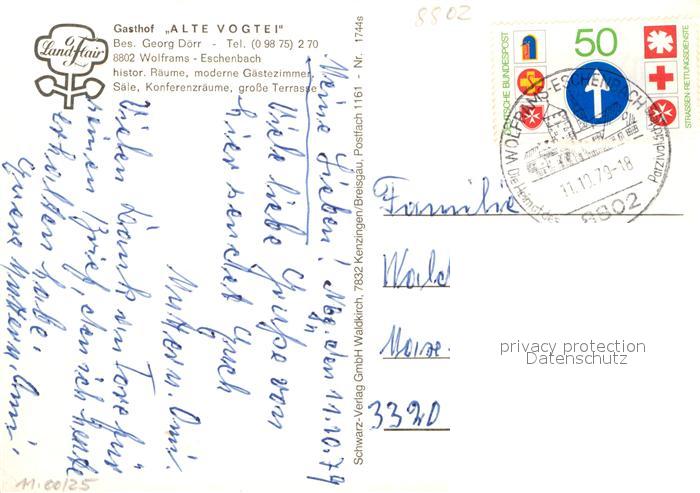 8802
Landflair
Gasthof „ALTE VOGTEI"
Bes. Georg Dörr - Tel. (0 98 75) 2 70
8802 Wolframs - Eschenbach
histor. Räume, moderne Gästezimmer,
Säle, Konferenzräume, große Terrasse
den 11.10.79
Meine Lieben!
Viele liebe Grüße von
hier sendet Euch
Muttern. Omi.
Vielen Dank an Tore für
seinen Brief, den ich heute
erhalten habe.
Eure Muttern. Omi.
11.00/25
Schwarz-Verlag GmbH Waldkirch, 7832 Kenzingen/Breisgau, Postfach 1161 - Nr. 1744s
DEUTSCHE BUNDESPOST
50
STRASSEN-RETTUNGSDIENSTE
WOLFRAMS-ESCHENBACH
Die Heimat des Parzival
11.10.79-18
8802
Familie
Wald
3320
privacy protection
Datenschutz